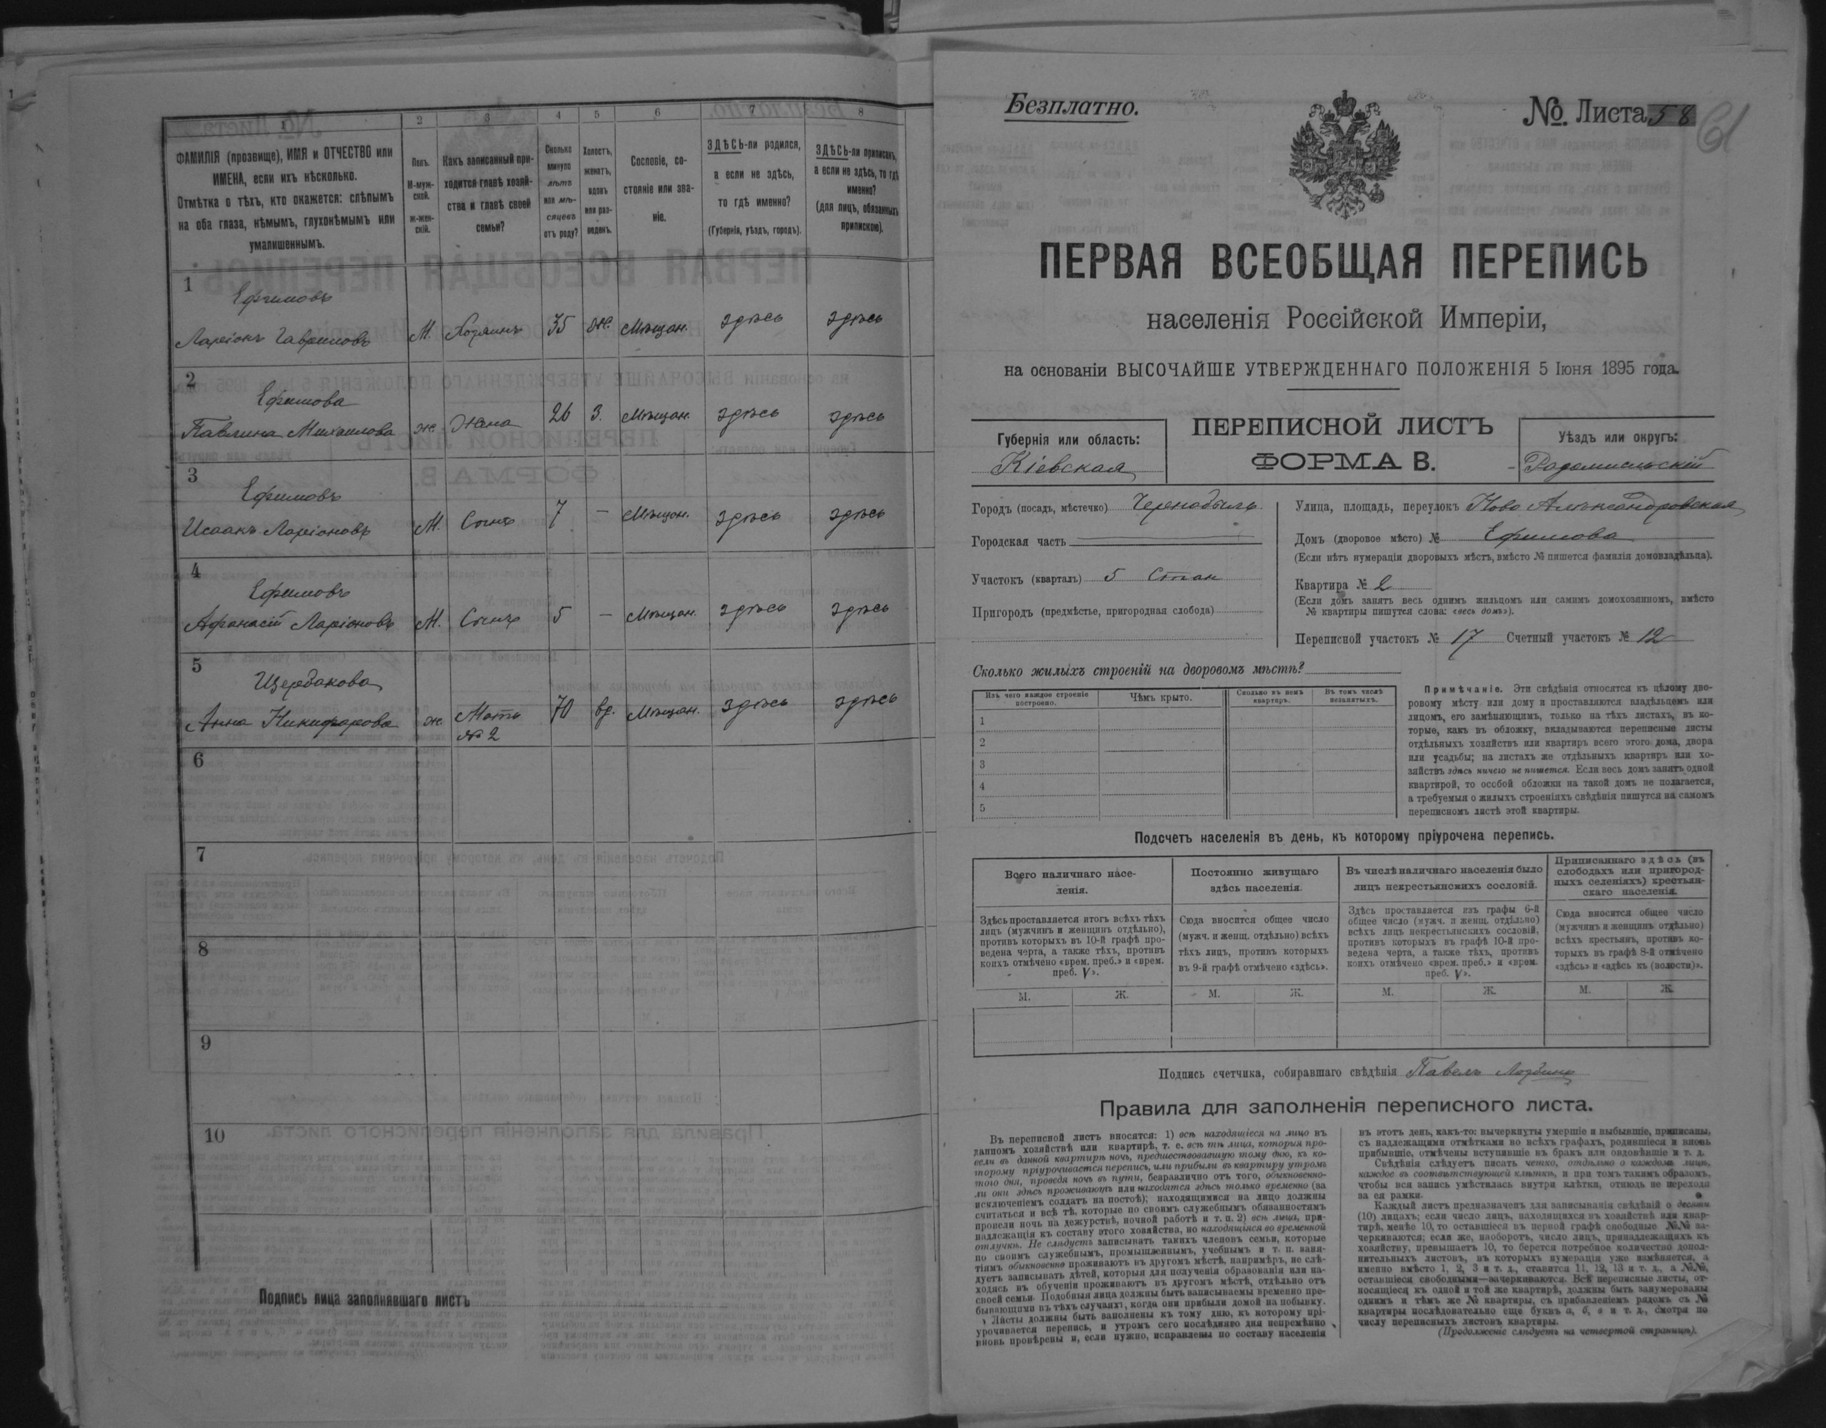 1
2
3
4
5
6
7
8
ФАМИЛІЯ (прозвище), ИМЯ и ОТЧЕСТВО или
ИМЕНА, если ихъ нѣсколько.
Отмѣтка о тѣхъ, кто окажется: слѣпымъ
на оба глаза, нѣмымъ, глухонѣмымъ или
умалишеннымъ.
Полъ.
М-муж-
ской.
ж-жен-
скій.
Какъ записанный при-
ходится главѣ хозяй-
ства и главѣ своей
семьи?
Сколько
минуло
лѣтъ
или мѣ-
сяцевъ
отъ роду?
Холостъ,
женатъ,
вдовъ
или раз-
веденъ.
Сословіе, со-
стояніе или зва-
ніе.
ЗДѢСЬ-ли родился,
а если не здѣсь,
то гдѣ именно?
(Губернія, уѣздъ, городъ).
ЗДѢСЬ-ли приписанъ,
а если не здѣсь, то гдѣ
именно?
(для лицъ, обязанныхъ
припискою).
1
Ефимовъ
Ларіонъ Гавриловъ М. Хозяинъ 35 ж. Мѣщан. здѣсь здѣсь
2
Ефимова
Павлина Михаилова ж Жена 26 З. Мѣщан. здѣсь здѣсь
3
Ефимовъ
Исаакъ Ларіоновъ М. Сынъ 7 — Мѣщан. здѣсь здѣсь
4
Ефимовъ
Афанасій Ларіоновъ М. Сынъ 5 — Мѣщан. здѣсь здѣсь
5
Щербакова
Анна Никифорова ж Мать 70 вд. Мѣщан. здѣсь здѣсь
№ 2
6
7
8
9
10
Подпись лица заполнявшаго листъ
Безплатно.
№ Листа 58
61
ПЕРВАЯ ВСЕОБЩАЯ ПЕРЕПИСЬ
населенія Россійской Имперіи,
на основаніи ВЫСОЧАЙШЕ УТВЕРЖДЕННАГО ПОЛОЖЕНІЯ 5 Іюня 1895 года.
Губернія или область:
Кіевская
ПЕРЕПИСНОЙ ЛИСТЪ
ФОРМА В.
Уѣздъ или округъ:
Радомысльскій
Городъ (посадъ, мѣстечко) Чернобыль
Городская часть
Участокъ (кварталъ) 5 Станъ
Пригородъ (предмѣстье, пригородная слобода)
Улица, площадь, переулокъ Ново Александровская
Домъ (дворовое мѣсто) № Ефимова
(Если нѣтъ нумераціи дворовыхъ мѣстъ, вмѣсто № пишется фамилія домовладѣльца).
Квартира № 2
(Если домъ занятъ весь однимъ жильцомъ или самимъ домохозяиномъ, вмѣсто
№ квартиры пишутся слова: «весь домъ»).
Переписной участокъ № 17 Счетный участокъ № 12
Сколько жилыхъ строеній на дворовомъ мѣстѣ?
Изъ чего каждое строеніе
построено.
Чѣмъ крыто.
Сколько въ немъ
квартиръ.
Въ томъ числѣ
незанятыхъ.
1
2
3
4
5
Примѣчаніе. Эти свѣдѣнія относятся къ цѣлому дво-
ровому мѣсту или дому и проставляются владѣльцемъ или
лицомъ, его замѣняющимъ, только на тѣхъ листахъ, въ ко-
торые, какъ въ обложку, вкладываются переписные листы
отдѣльныхъ хозяйствъ или квартиръ всего этого дома, двора
или усадьбы; на листахъ же отдѣльныхъ квартиръ или хо-
зяйствъ здѣсь ничего не пишется. Если весь домъ занятъ одной
квартирой, то особой обложки на такой домъ не полагается,
а требуемыя о жилыхъ строеніяхъ свѣдѣнія пишутся на самомъ
переписномъ листѣ этой квартиры.
Подсчетъ населенія въ день, къ которому пріурочена перепись.
Всего наличнаго насе-
ленія.
Здѣсь проставляется итогъ всѣхъ тѣхъ
лицъ (мужчинъ и женщинъ отдѣльно),
противъ которыхъ въ 10-й графѣ про-
ведена черта, а также тѣхъ, противъ
коихъ отмѣчено «врем. преб.» и «врем.
преб. V».
Постоянно живущаго
здѣсь населенія.
Сюда вносится общее число
(мужч. и женщ. отдѣльно) всѣхъ
тѣхъ лицъ, противъ которыхъ
въ 9-й графѣ отмѣчено «здѣсь».
Въ числѣ наличнаго населенія было
лицъ некрестьянскихъ сословій.
Здѣсь проставляется изъ графы 6-й
общее число (мужч. и женщ. отдѣльно)
всѣхъ лицъ некрестьянскихъ сословій,
противъ которыхъ въ графѣ 10-й про-
ведена черта, а также тѣхъ, противъ
коихъ отмѣчено «врем. преб.» и «врем.
преб. V».
Приписаннаго здѣсь (въ
слободахъ или пригород-
ныхъ селеніяхъ) крестьян-
скаго населенія.
Сюда вносится общее число
(мужчинъ и женщинъ отдѣльно)
всѣхъ крестьянъ, противъ ко-
торыхъ въ графѣ 8-й отмѣчено
«здѣсь» и «здѣсь къ (волости)».
М. Ж. М. Ж. М. Ж. М. Ж.
Подпись счетчика, собиравшаго свѣдѣнія Павелъ
Правила для заполненія переписного листа.
Въ переписной листъ вносятся: 1) всѣ находящіеся на лицо въ
данномъ хозяйствѣ или квартирѣ, т. е. всѣ тѣ лица, которыя про-
вели въ данной квартирѣ ночь, предшествовавшую тому дню, къ ко-
торому пріурочивается перепись, или прибыли въ квартиру утромъ
того дня, проведя ночь въ пути, безразлично отъ того, обыкновенно-
ли они здѣсь проживаютъ или находятся здѣсь только временно (за
исключеніемъ солдатъ на постоѣ); находящимися на лицо должны
считаться и всѣ тѣ, которые по своимъ служебнымъ обязанностямъ
провели ночь на дежурствѣ, ночной работѣ и т. п. 2) всѣ лица, при-
надлежащія къ составу этого хозяйства, но находящіяся во временной
отлучкѣ. Не слѣдуетъ записывать такихъ членовъ семьи, которые
по своимъ служебнымъ, промышленнымъ, учебнымъ и т. п. заня-
тіямъ обыкновенно проживаютъ въ другомъ мѣстѣ, напримѣръ, не слѣ-
дуетъ записывать дѣтей, которыя для полученія образованія или на-
ходясь въ обученіи проживаютъ въ другомъ мѣстѣ, отдѣльно отъ
своей семьи. Подобныя лица должны быть записываемы временно пре-
бывающими въ тѣхъ случаяхъ, когда они прибыли домой на побывку.
Листы должны быть заполнены къ тому дню, къ которому прі-
урочивается перепись, и утромъ сего послѣдняго дня непремѣнно
вновь провѣрены и, если нужно, исправлены по составу населенія
въ этотъ день, какъ-то: вычеркнуты умершіе и выбывшіе, приписаны,
съ надлежащими отмѣтками во всѣхъ графахъ, родившіеся и вновь
прибывшіе, отмѣчены вступившіе въ бракъ или овдовѣвшіе и т. д.
Свѣдѣнія слѣдуетъ писать четко, отдѣльно о каждомъ лицѣ,
каждое въ соотвѣтствующей клѣткѣ, и при томъ такимъ образомъ,
чтобы вся запись умѣстилась внутри клѣтки, отнюдь не переходя
за ея рамки.
Каждый листъ предназначенъ для записыванія свѣдѣній о десяти
(10) лицахъ; если число лицъ, находящихся въ хозяйствѣ или квар-
тирѣ, менѣе 10, то оставшіеся въ первой графѣ свободные №№ за-
черкиваются; если же, наоборотъ, число лицъ, принадлежащихъ къ
хозяйству, превышаетъ 10, то берется потребное количество допол-
нительныхъ листовъ, въ которыхъ нумерація уже измѣняется, а
именно вмѣсто 1, 2, 3 и т. д., ставится 11, 12, 13 и т. д., а №№,
оставшіеся свободными—зачеркиваются. Всѣ переписные листы, от-
носящіеся къ одной и той же квартирѣ, должны быть занумерованы
однимъ и тѣмъ же № квартиры, съ прибавленіемъ рядомъ съ №
квартиры послѣдовательно еще буквъ а, б, в и т. д., смотря по
числу переписныхъ листовъ квартиры.
(Продолженіе слѣдуетъ на четвертой страницѣ).